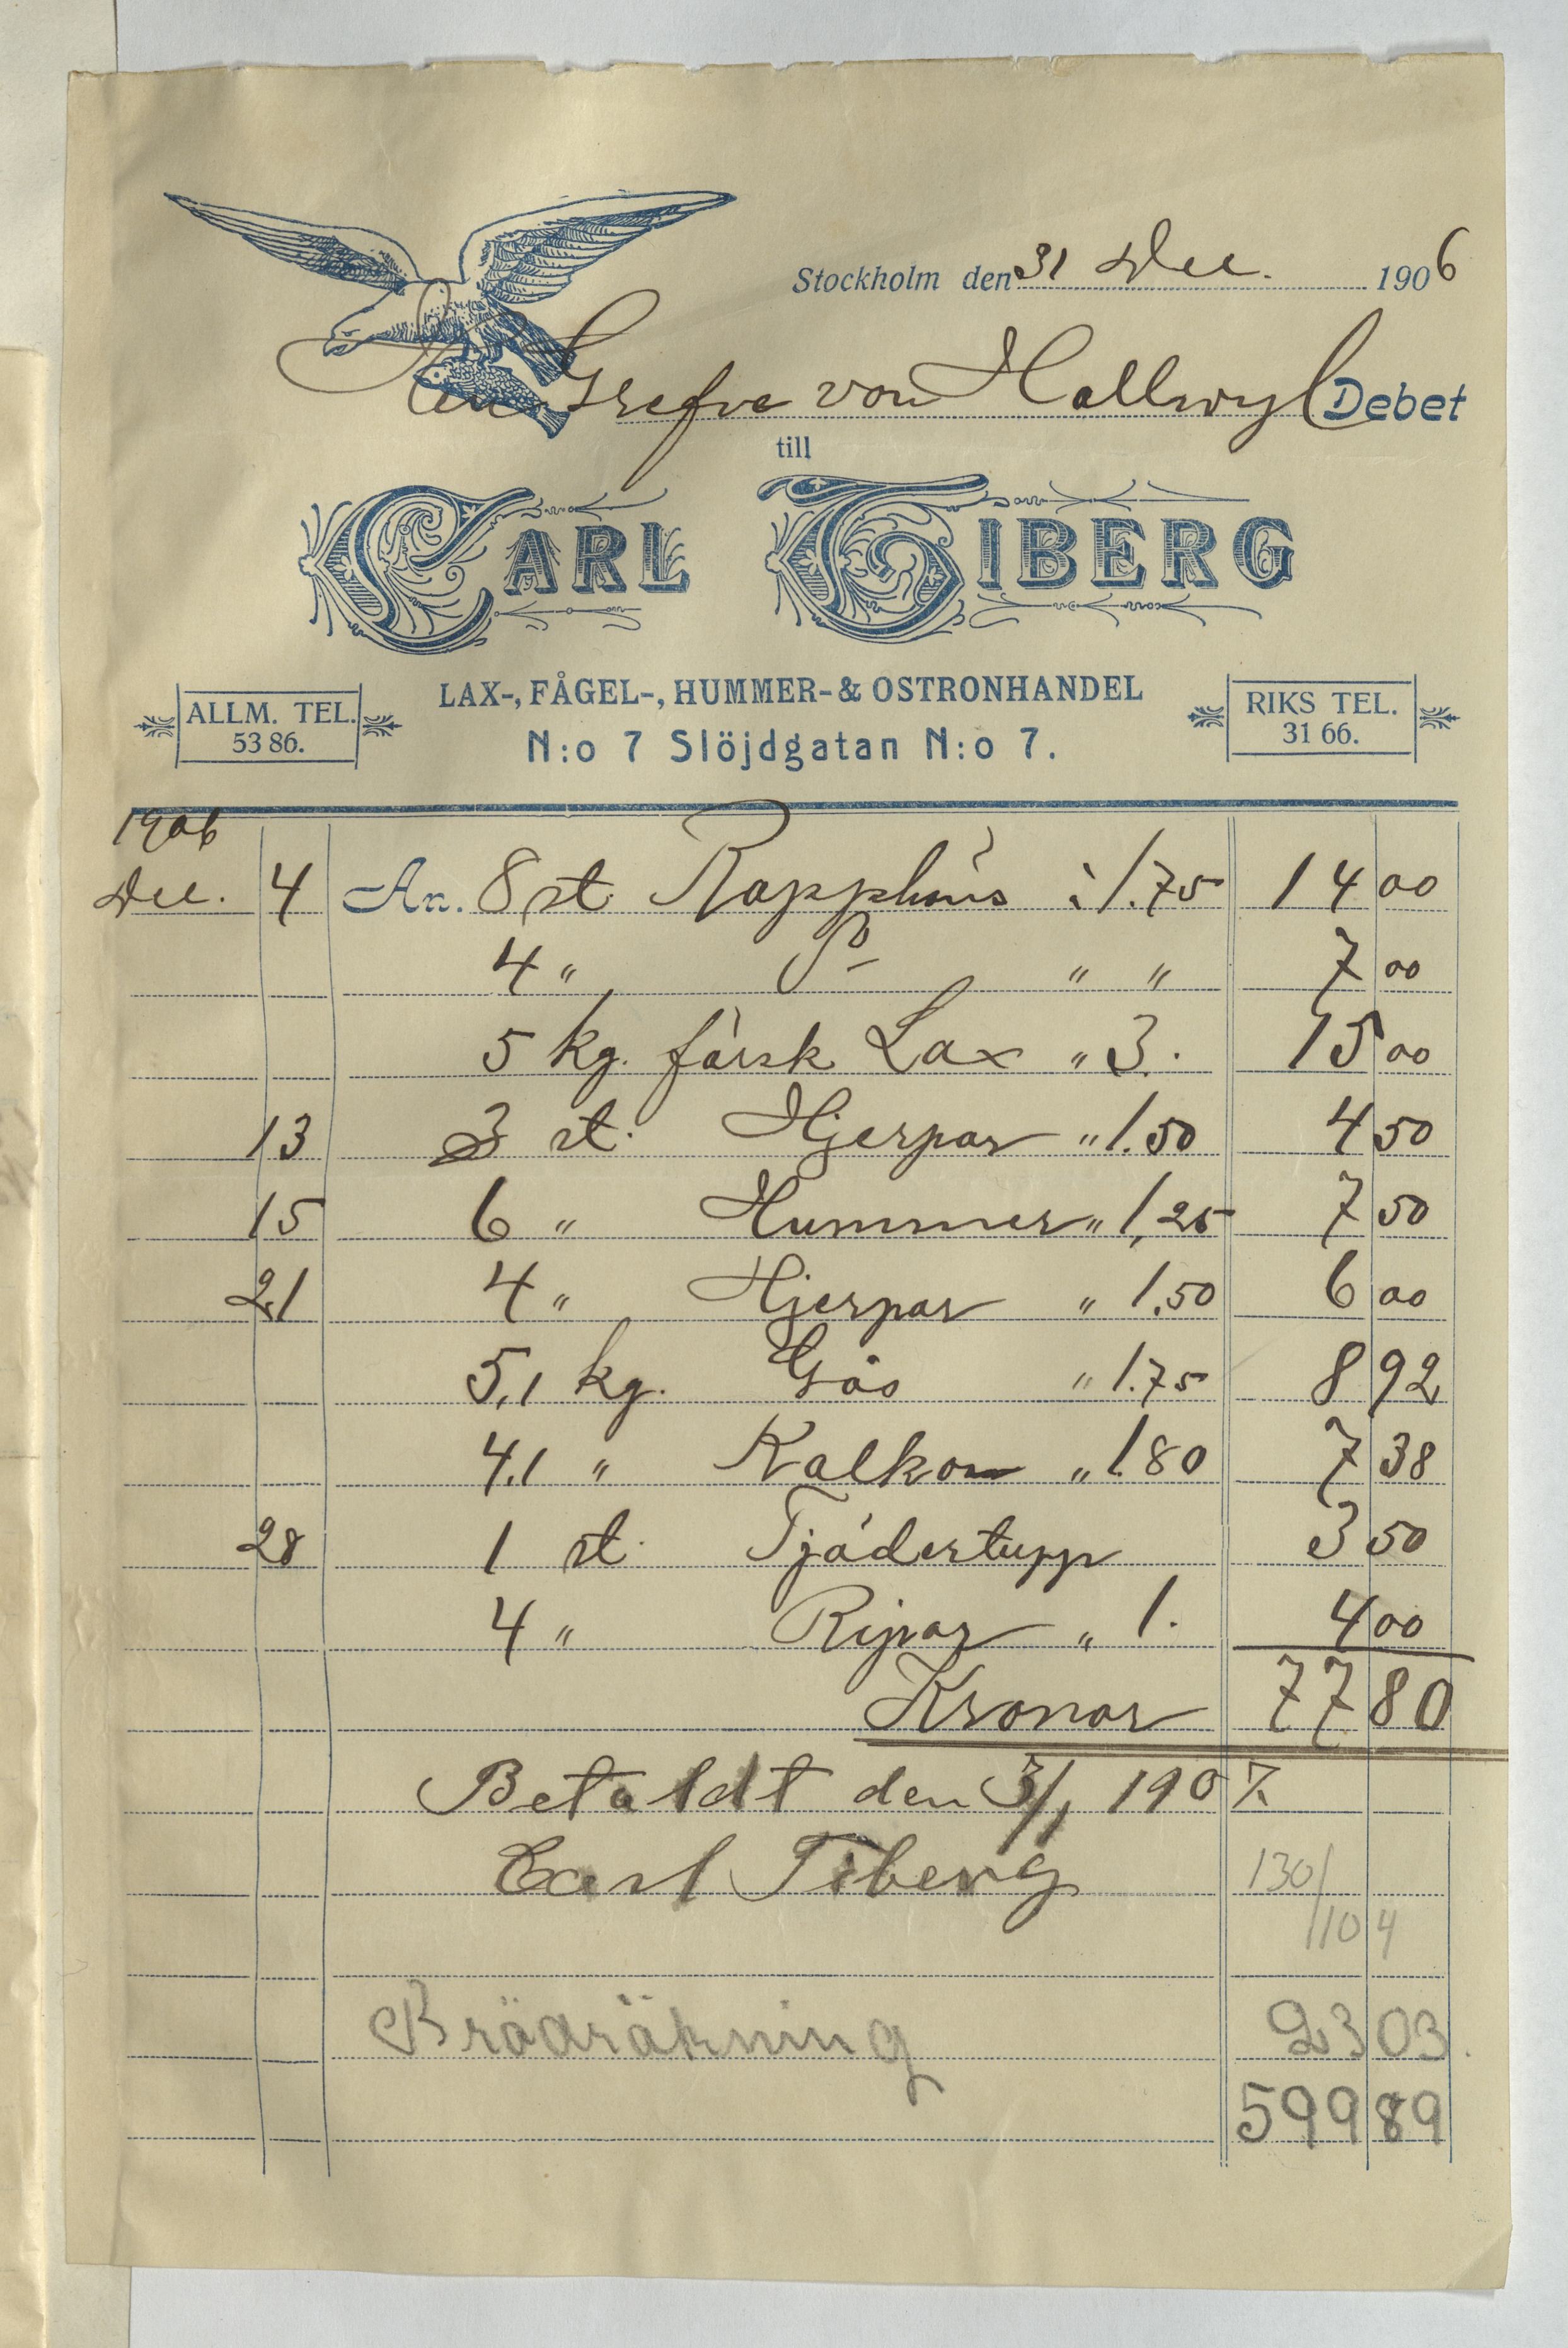 Stockholm den 31 Dec. 1906
Herr Grefve von Hallwyl Debet
till
CARL TIBERG
LAX-, FÅGEL-, HUMMER- & OSTRONHANDEL
ALLM. TEL. 53 86.
N:o 7 Slöjdgatan N:o 7.
RIKS TEL. 31 66.
1906
Dec. 4 An. 8 st. Rapphöns à 1.75 14 00
4 " Do " " 7 00
5 kg. färsk Lax " 3. 15 00
13 3 st. Hjerpar " 1.50 4 50
15 6 " Hummer " 1,25 7 50
21 4 " Hjerpar " 1.50 6 00
5,1 kg. Gås " 1.75 8 92
4,1 " Kalkon " 1.80 7 38
28 1 st. Tjädertupp 3 50
4 " Ripor " 1. 4 00
Kronor 77 80
Betaldt den 3/1 1907.
Carl Tiberg
130/
1104
Brödräkning 23 03.
599 89